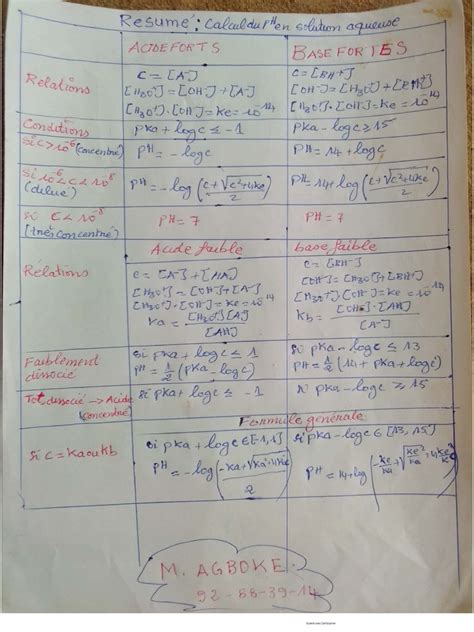 Resumé : Calcul du PH en solution aqueuse
ACIDE FORTS
BASE FORTES
Relations
C = [A⁻]
[H₃O⁺] = [OH⁻] + [A⁻]
[H₃O⁺]·[OH⁻] = Ke = 10⁻¹⁴
C = [BH⁺]
[OH⁻] = [H₃O⁺] + [BH⁺]
[H₃O⁺]·[OH⁻] = Ke = 10⁻¹⁴
Conditions
PKa + log c ≤ -1
PKa - log c ≥ 15
si C > 10⁻⁶ (concentré)
PH = - log c
PH = 14 + log c
Si 10⁻⁶ < C < 10⁻⁸
(dilué)
PH = - log (c + √c² + 4Ke / 2)
PH = 14 + log (c + √c² + 4Ke / 2)
si C < 10⁻⁸
(très concentré)
PH = 7
PH = 7
Acide faible
base faible
Relations
C = [A⁻] + [HA]
[H₃O⁺] = [OH⁻] + [A⁻]
[H₃O⁺]·[OH⁻] = Ke = 10⁻¹⁴
Ka = [H₃O⁺][A⁻] / [AH]
C = [BH⁺]
[OH⁻] = [H₃O⁺] + [BH⁺]
[H₃O⁺]·[OH⁻] = Ke = 10⁻¹⁴
Kb = [OH⁻]·[AH] / [A⁻]
Faiblement
dissocié
si PKa + log c ≤ 1
PH = 1/2 (PKa - log c)
si PKa - log c ≤ 13
PH = 1/2 (14 + PKa + log c)
Tot dissocié → Acide
(concentré)
si PKa + log c ≤ -1
si PKa - log c ≥ 15
Formule générale
si C = Ka ou Kb
si PKa + log c ∈ [-1, 1]
si PKa - log c ∈ [13, 15]
M. AGBOKE
92-68-39-14